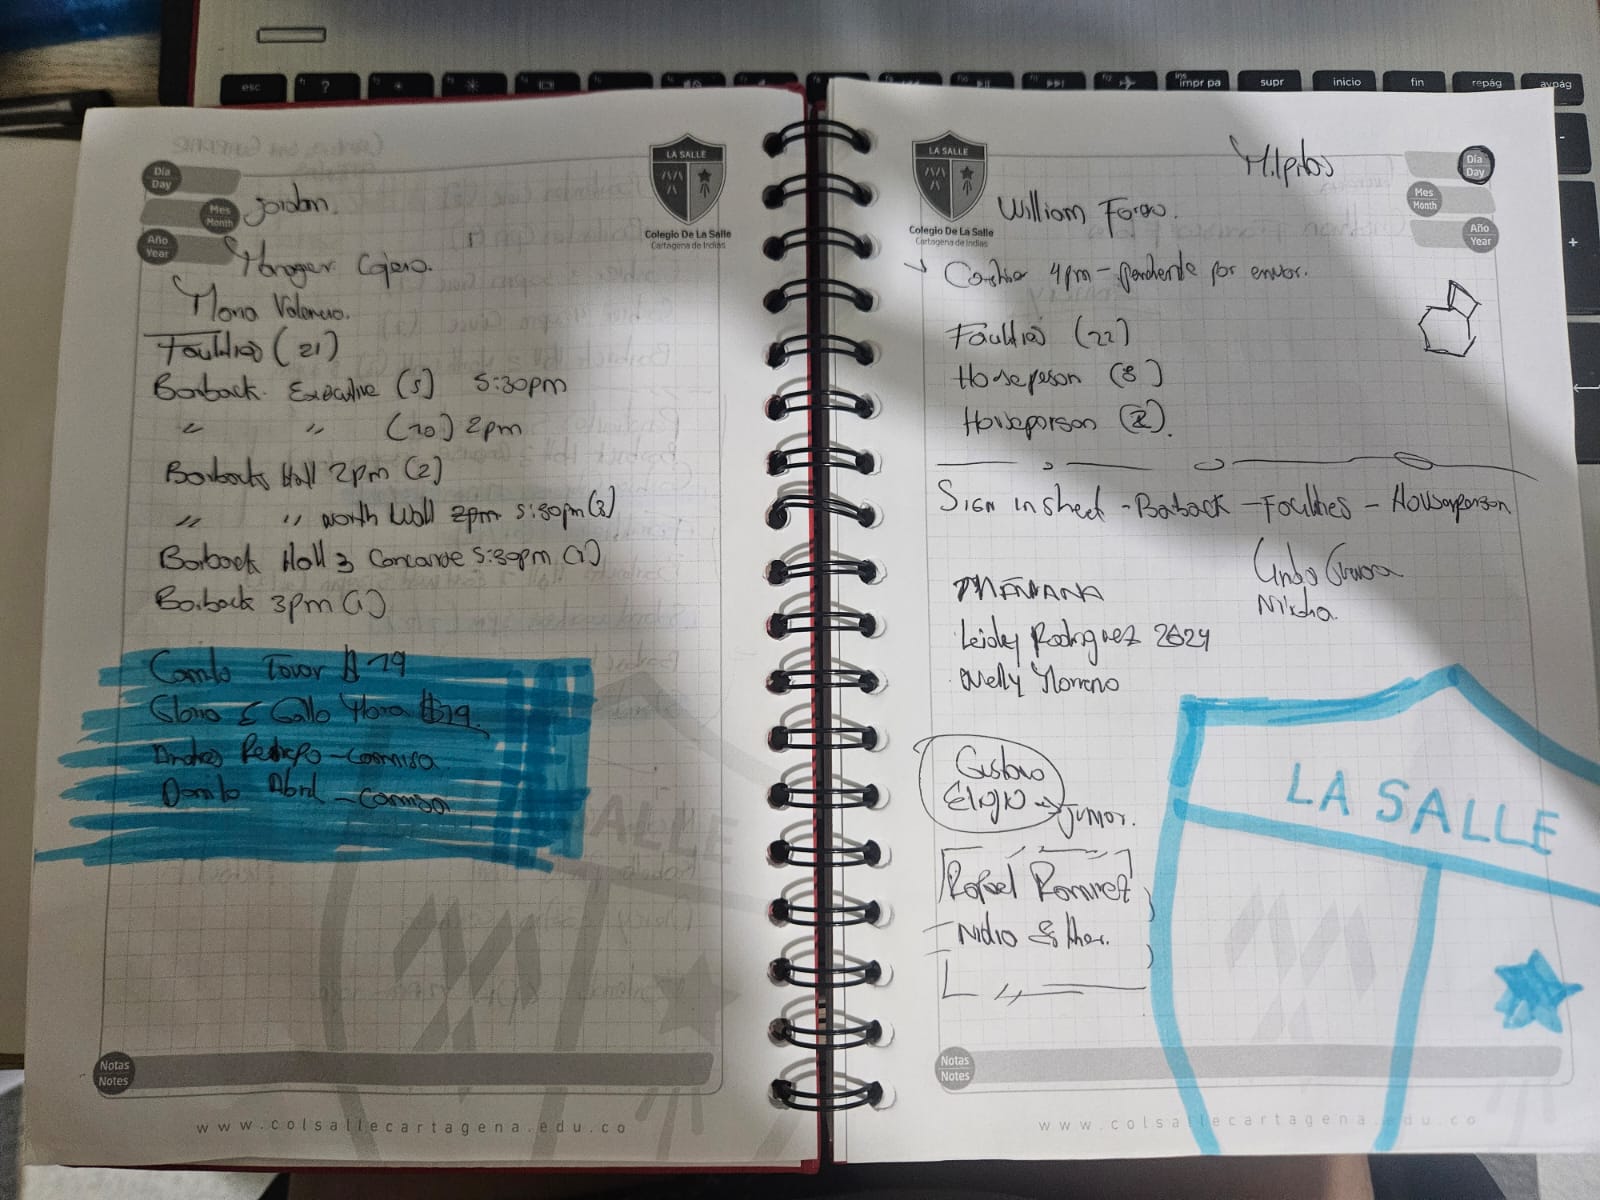 esc
impr pa
supr
inicio
fin
repág
Día
Day
Mes
Month
Año
Year
LA SALLE
Colegio De La Salle
Cartagena de Indias
Jordan.
Manager Cajero.
Maria Valencia.
Faulties (21)
Barback Executive (5) 5:30pm
" " (10) 2pm
Barbacks Hall 2pm (2)
" " north Wall 2pm 5:30pm (2)
Barback Hall 3 Concorde 5:30pm (1)
Barback 3pm (1)
Camilo Tovar $ 19
Gloria E Gallo Mora $19.
Andres Restrepo - camisa
Danilo Abril - camisa
Notas
Notes
www.colsallecartagena.edu.co
LA SALLE
Colegio De La Salle
Cartagena de Indias
Milpitas
Día
Day
Mes
Month
Año
Year
William Forero.
→ Cashier 4pm - pendiente por enviar.
Faulties (22)
Houseperson (8)
Houseperson (2).
Sign in sheet - Barback - Faulties - Houseperson
Nikolia.
MAÑANA
Leidey Rodriguez 2624
Nelly Moreno
Gustavo
Eligio → Junior.
Rafael Ramirez
Nidia Esther.
LA SALLE
Notas
Notes
www.colsallecartagena.edu.co